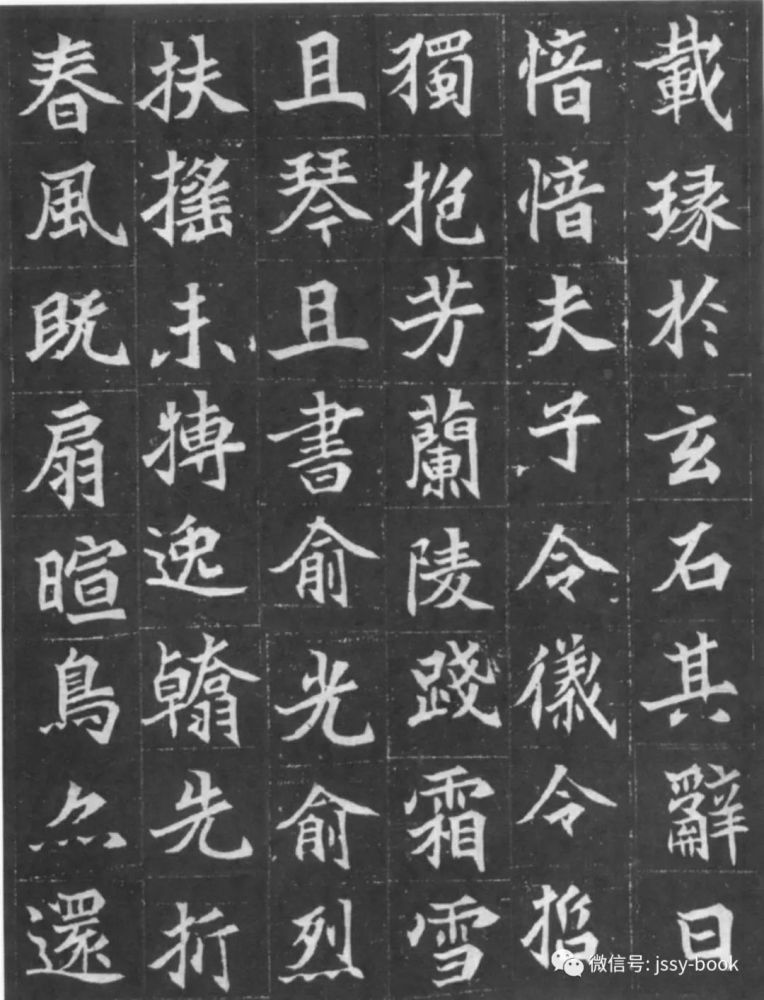 載瑑於玄石其辭曰
愔愔夫子令儀令哲
獨抱芳蘭陵踐霜雪
且琴且書俞光俞烈
扶搖未搏逸翰先折
春風既扇暄鳥亦還
微信号: jssy-book